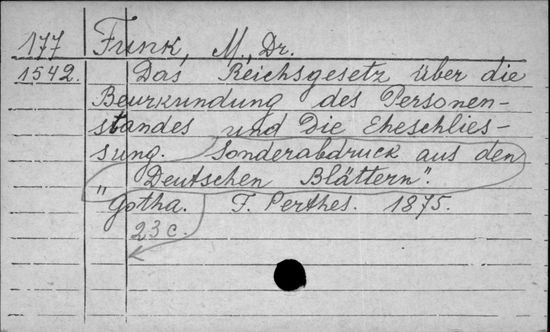 177 Funk, M., Dr.
1542. Das Reichsgesetz über die
Beurkundung des Personen-
standes und Die Eheschlies-
sung. Sonderabdruck aus den
„Deutschen Blättern".
Gotha. F. Perthes. 1875.
23 c.